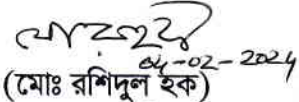 04-02-2024
(মোঃ রশিদুল হক)